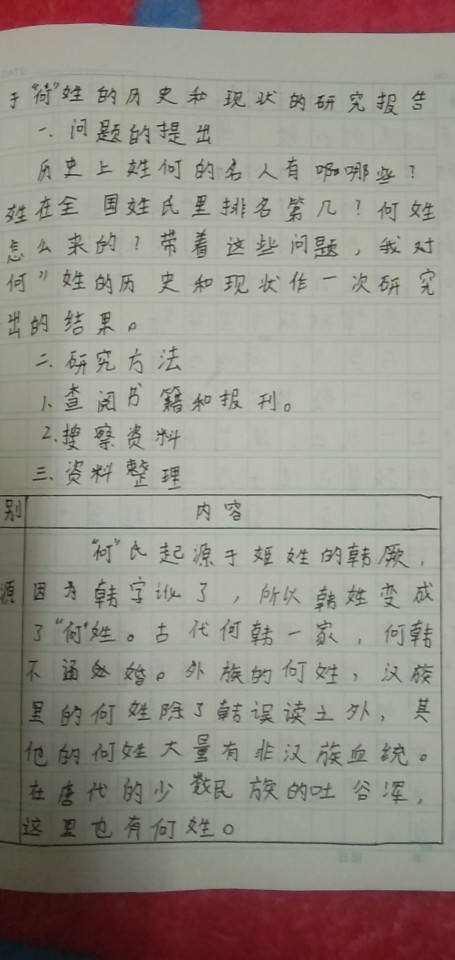 于"何"姓的历史和现状的研究报告
一、问题的提出
历史上姓何的名人有哪些?
姓在全国姓氏里排名第几?何姓
怎么来的?带着这些问题,我对
何"姓的历史和现状作一次研究
出的结果。
二、研究方法
1、查阅书籍和报刊。
2.搜察资料
三、资料整理
别 内容
"何"氏起源于姬姓的韩厥,
源 因为韩字讹了,所以韩姓变成
了"何"姓。古代何韩一家,何韩
不通婚。外族的何姓,汉族
里的何姓除了韩误读之外,其
他的何姓大量有非汉族血统。
在唐代的少数民族的吐谷浑,
这里也有何姓。